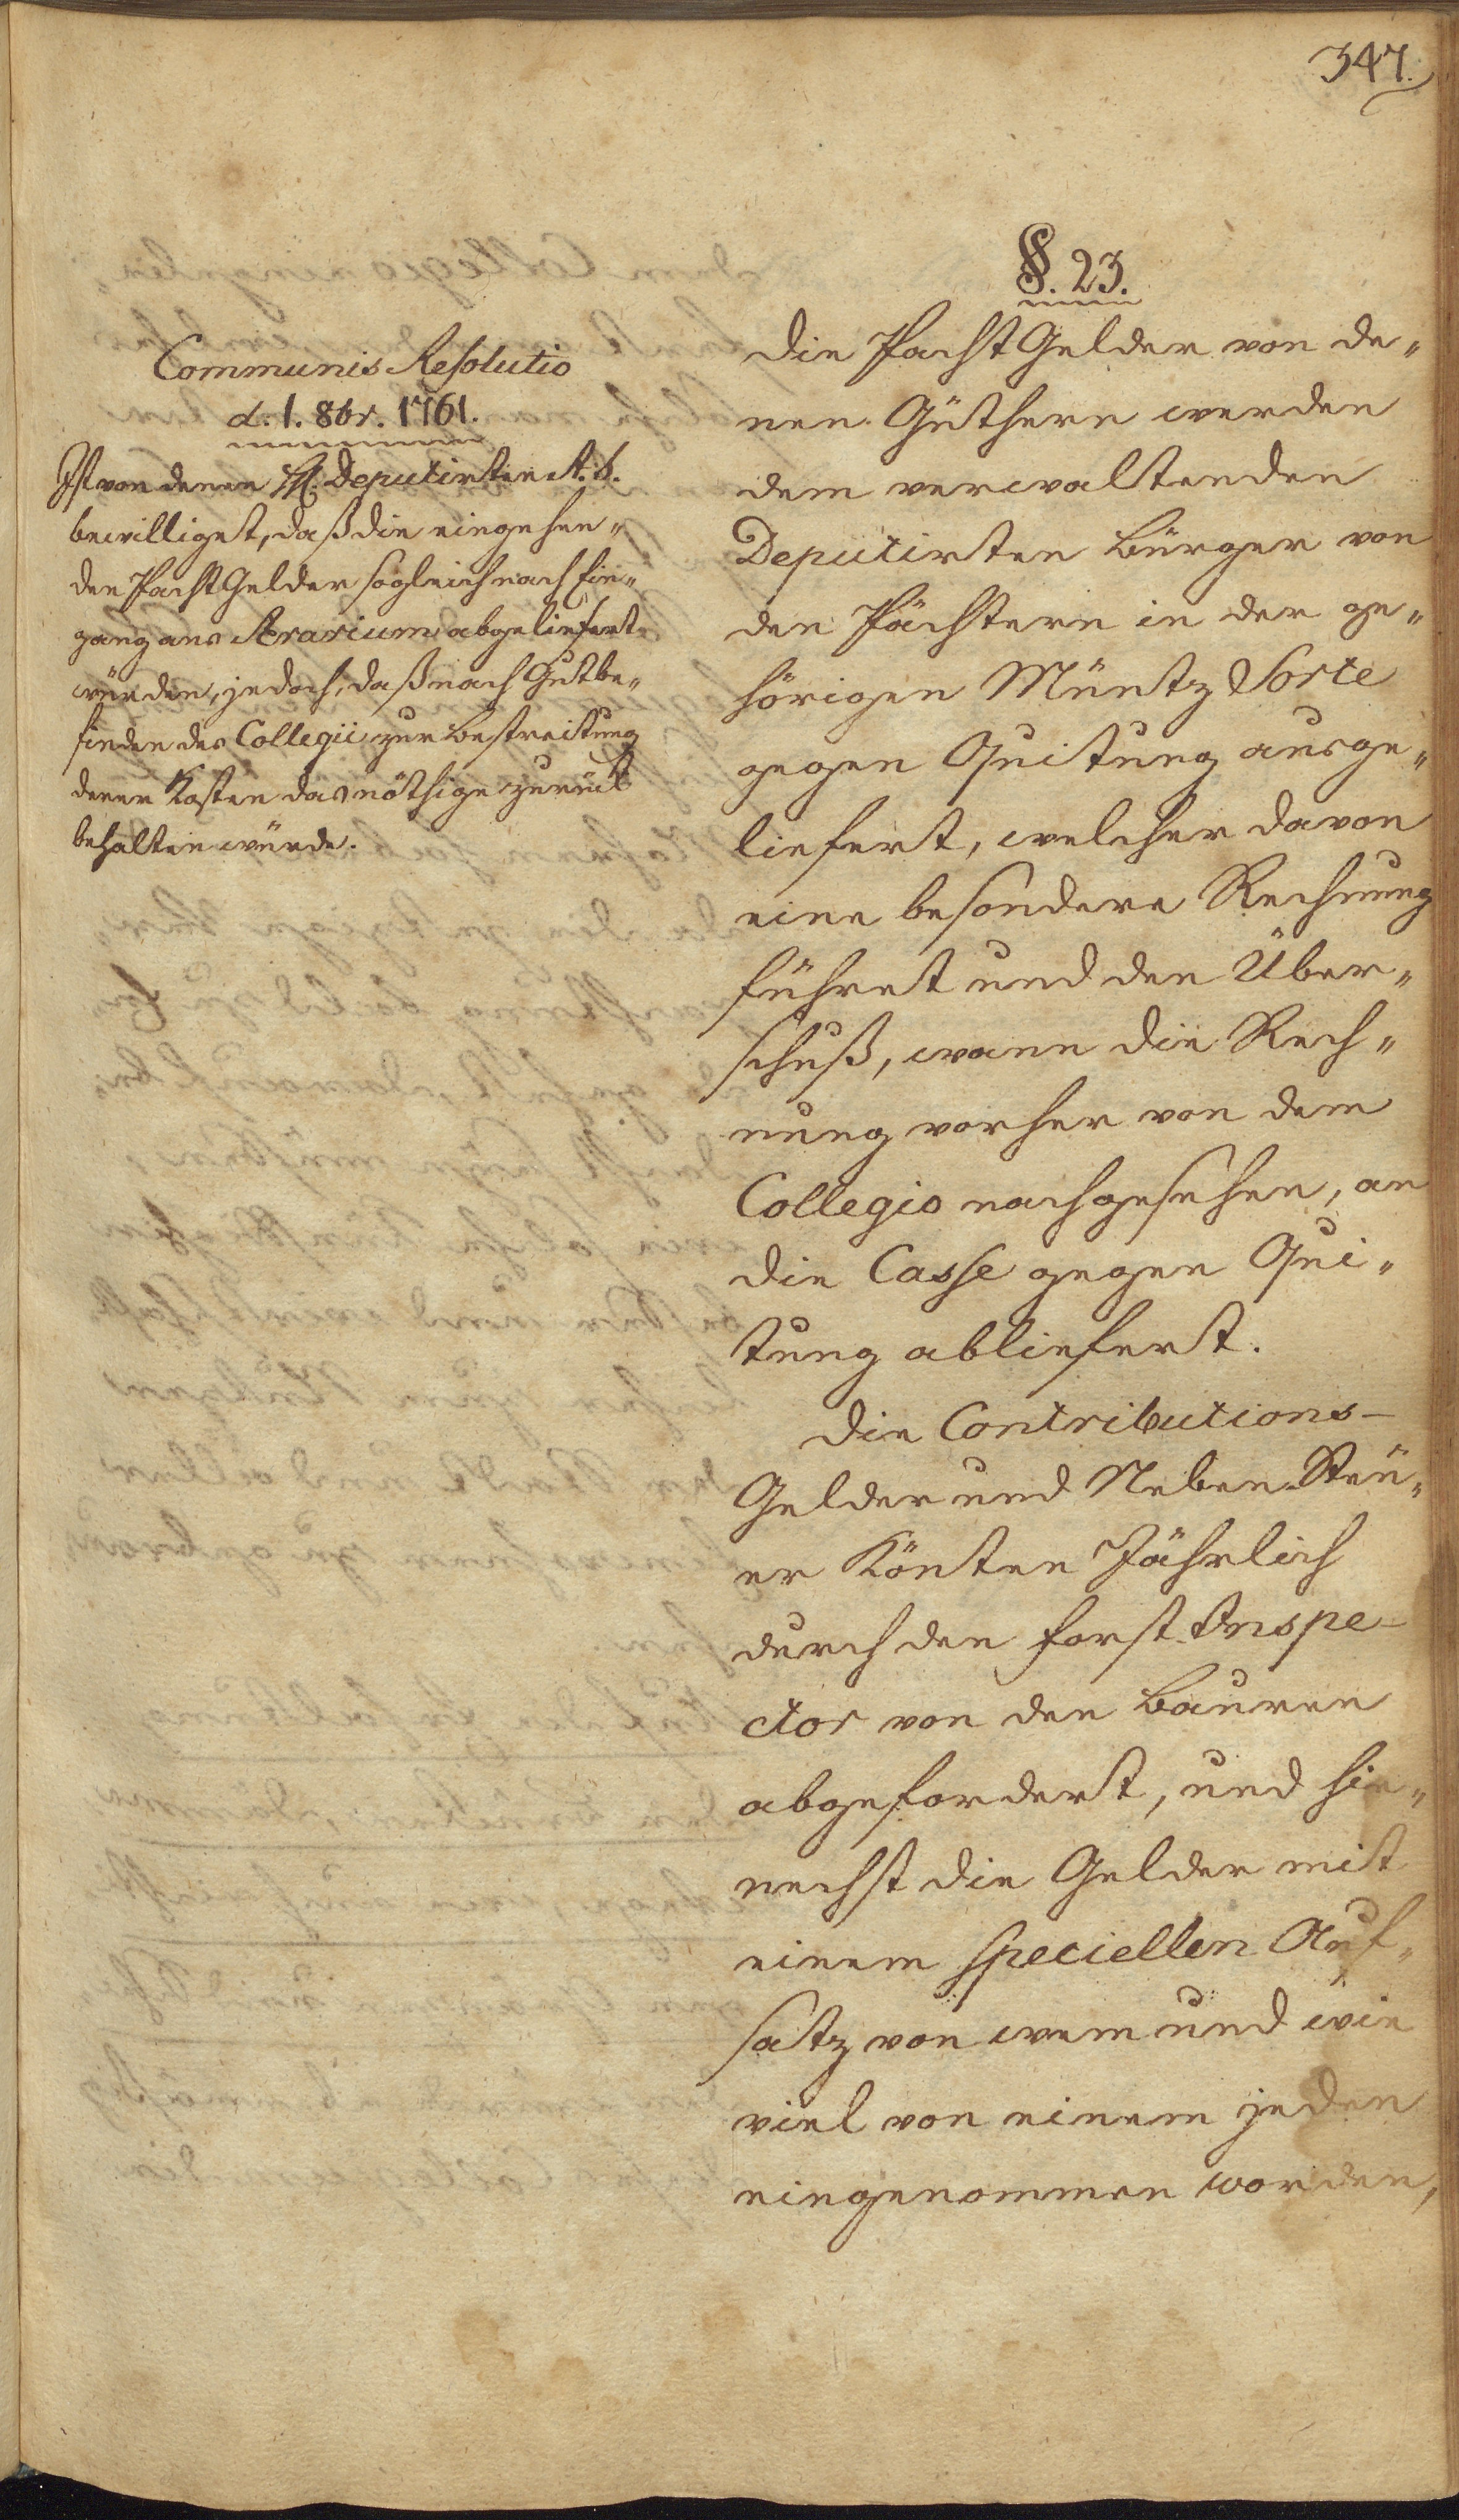 347.
Communis Resolutio
d. 1. 8br. 1761.
Ist von denen H. Deputirten A. S.
bewilliget, daß die eingehen„
den Pacht Gelder sogleich nach Ein„
gang ans Ærarium abgeliefert
würden, jedoch, daß nach Gutbe„
finden des Collegii zur Bestreitung
derer Kosten das nöthige zurück
behalten würde.
§. 23.
die Pacht Gelder von de„
nen Güthern werden
dem verwaltenden
Deputirten Bürger von
den Pächtern in der ge„
hörigen Müntz Sorte
gegen Quitung ausge„
liefert, welcher davon
eine besondere Rechnung
führet und den Über„
schuß, wann die Rech„
nung vorher von dem
Collegio nachgesehen, an
die Casse gegen Qui„
tung abliefert.
die Contributions-
Gelder und Neben Steü„
er könten Jährlich
durch den Forst Inspe-
ctor von den Bauren
abgefordert, und hie„
nechst die Gelder mit
einem speciellen Auf„
satz von wem und wie
viel von einem jeden
eingenommen worden,